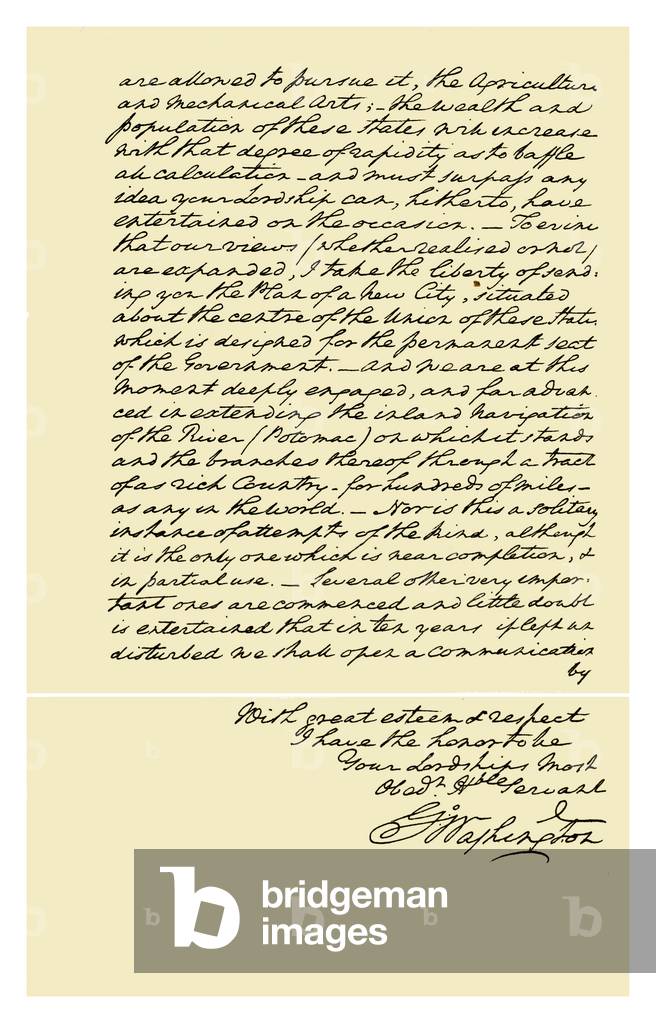 are allowed to pursue it, the Agriculture
and Mechanical Arts; – the wealth and
population of these States will increase
with that degree of rapidity as to baffle
all calculation – and must surpass any
idea your Lordship can, hitherto, have
entertained on the occasion. – To evince
that our views (whether realised or not)
are expanded, I take the liberty of send:
ing you the Plan of a New City, situated
about the centre of the Union of these States,
which is designed for the permanent seat
of the Government. – And we are at this
moment deeply engaged, and far advan
ced in extending the inland navigation
of the River (Potomac) on which it stands
and the branches thereof through a tract
of as rich Country – for hundreds of miles –
as any in the world. – Nor is this a solitary
instance of attempts of the kind, although
it is the only one which is near completion, &
in partial use. – Several other very impor:
tant ones are commenced and little doubt
is entertained that in ten years if left un
disturbed we shall open a communication
by
With great esteem & respect
I have the honor to be
Your Lordships Most
Obedt Hble Servant
Go: Washington
bridgeman
images